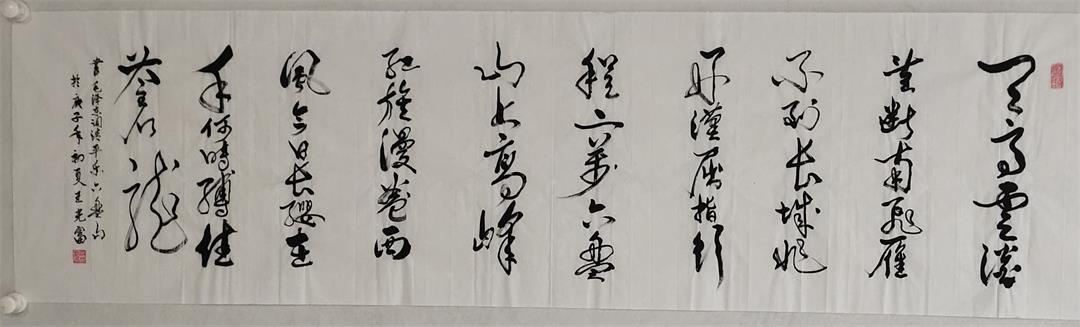 天高雲淡
望断南飛雁
不到長城非
好漢屈指行
程二萬六盤
山上高峰
紅旗漫卷西
風今日長纓在
手何時縛住
蒼龍
書毛澤東詞清平樂六盤山
於庚子年初夏王光富